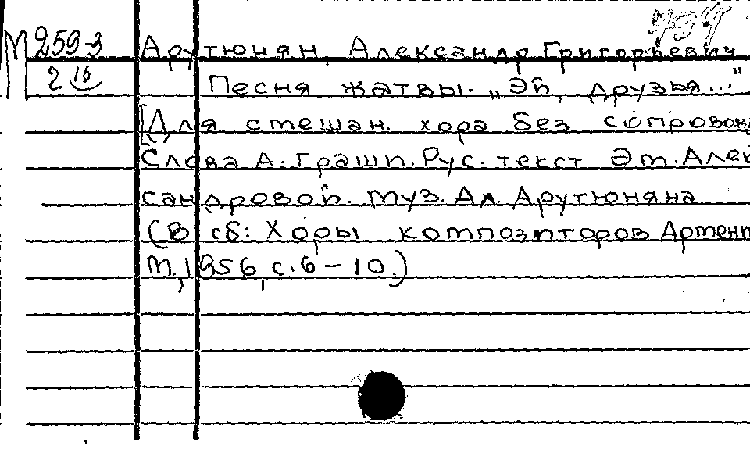 М 259-3 Арутюнян, Александр Григорьевич
2 Песня жатвы. „Эй, друзья..."
[Для смешан. хора без сопровож
Слова А. Граши. Рус. текст Эм. Алек
сандровой. Муз. Ал. Арутюняна
(В сб: Хоры композиторов Армени
М., 1956, с. 6-10.)